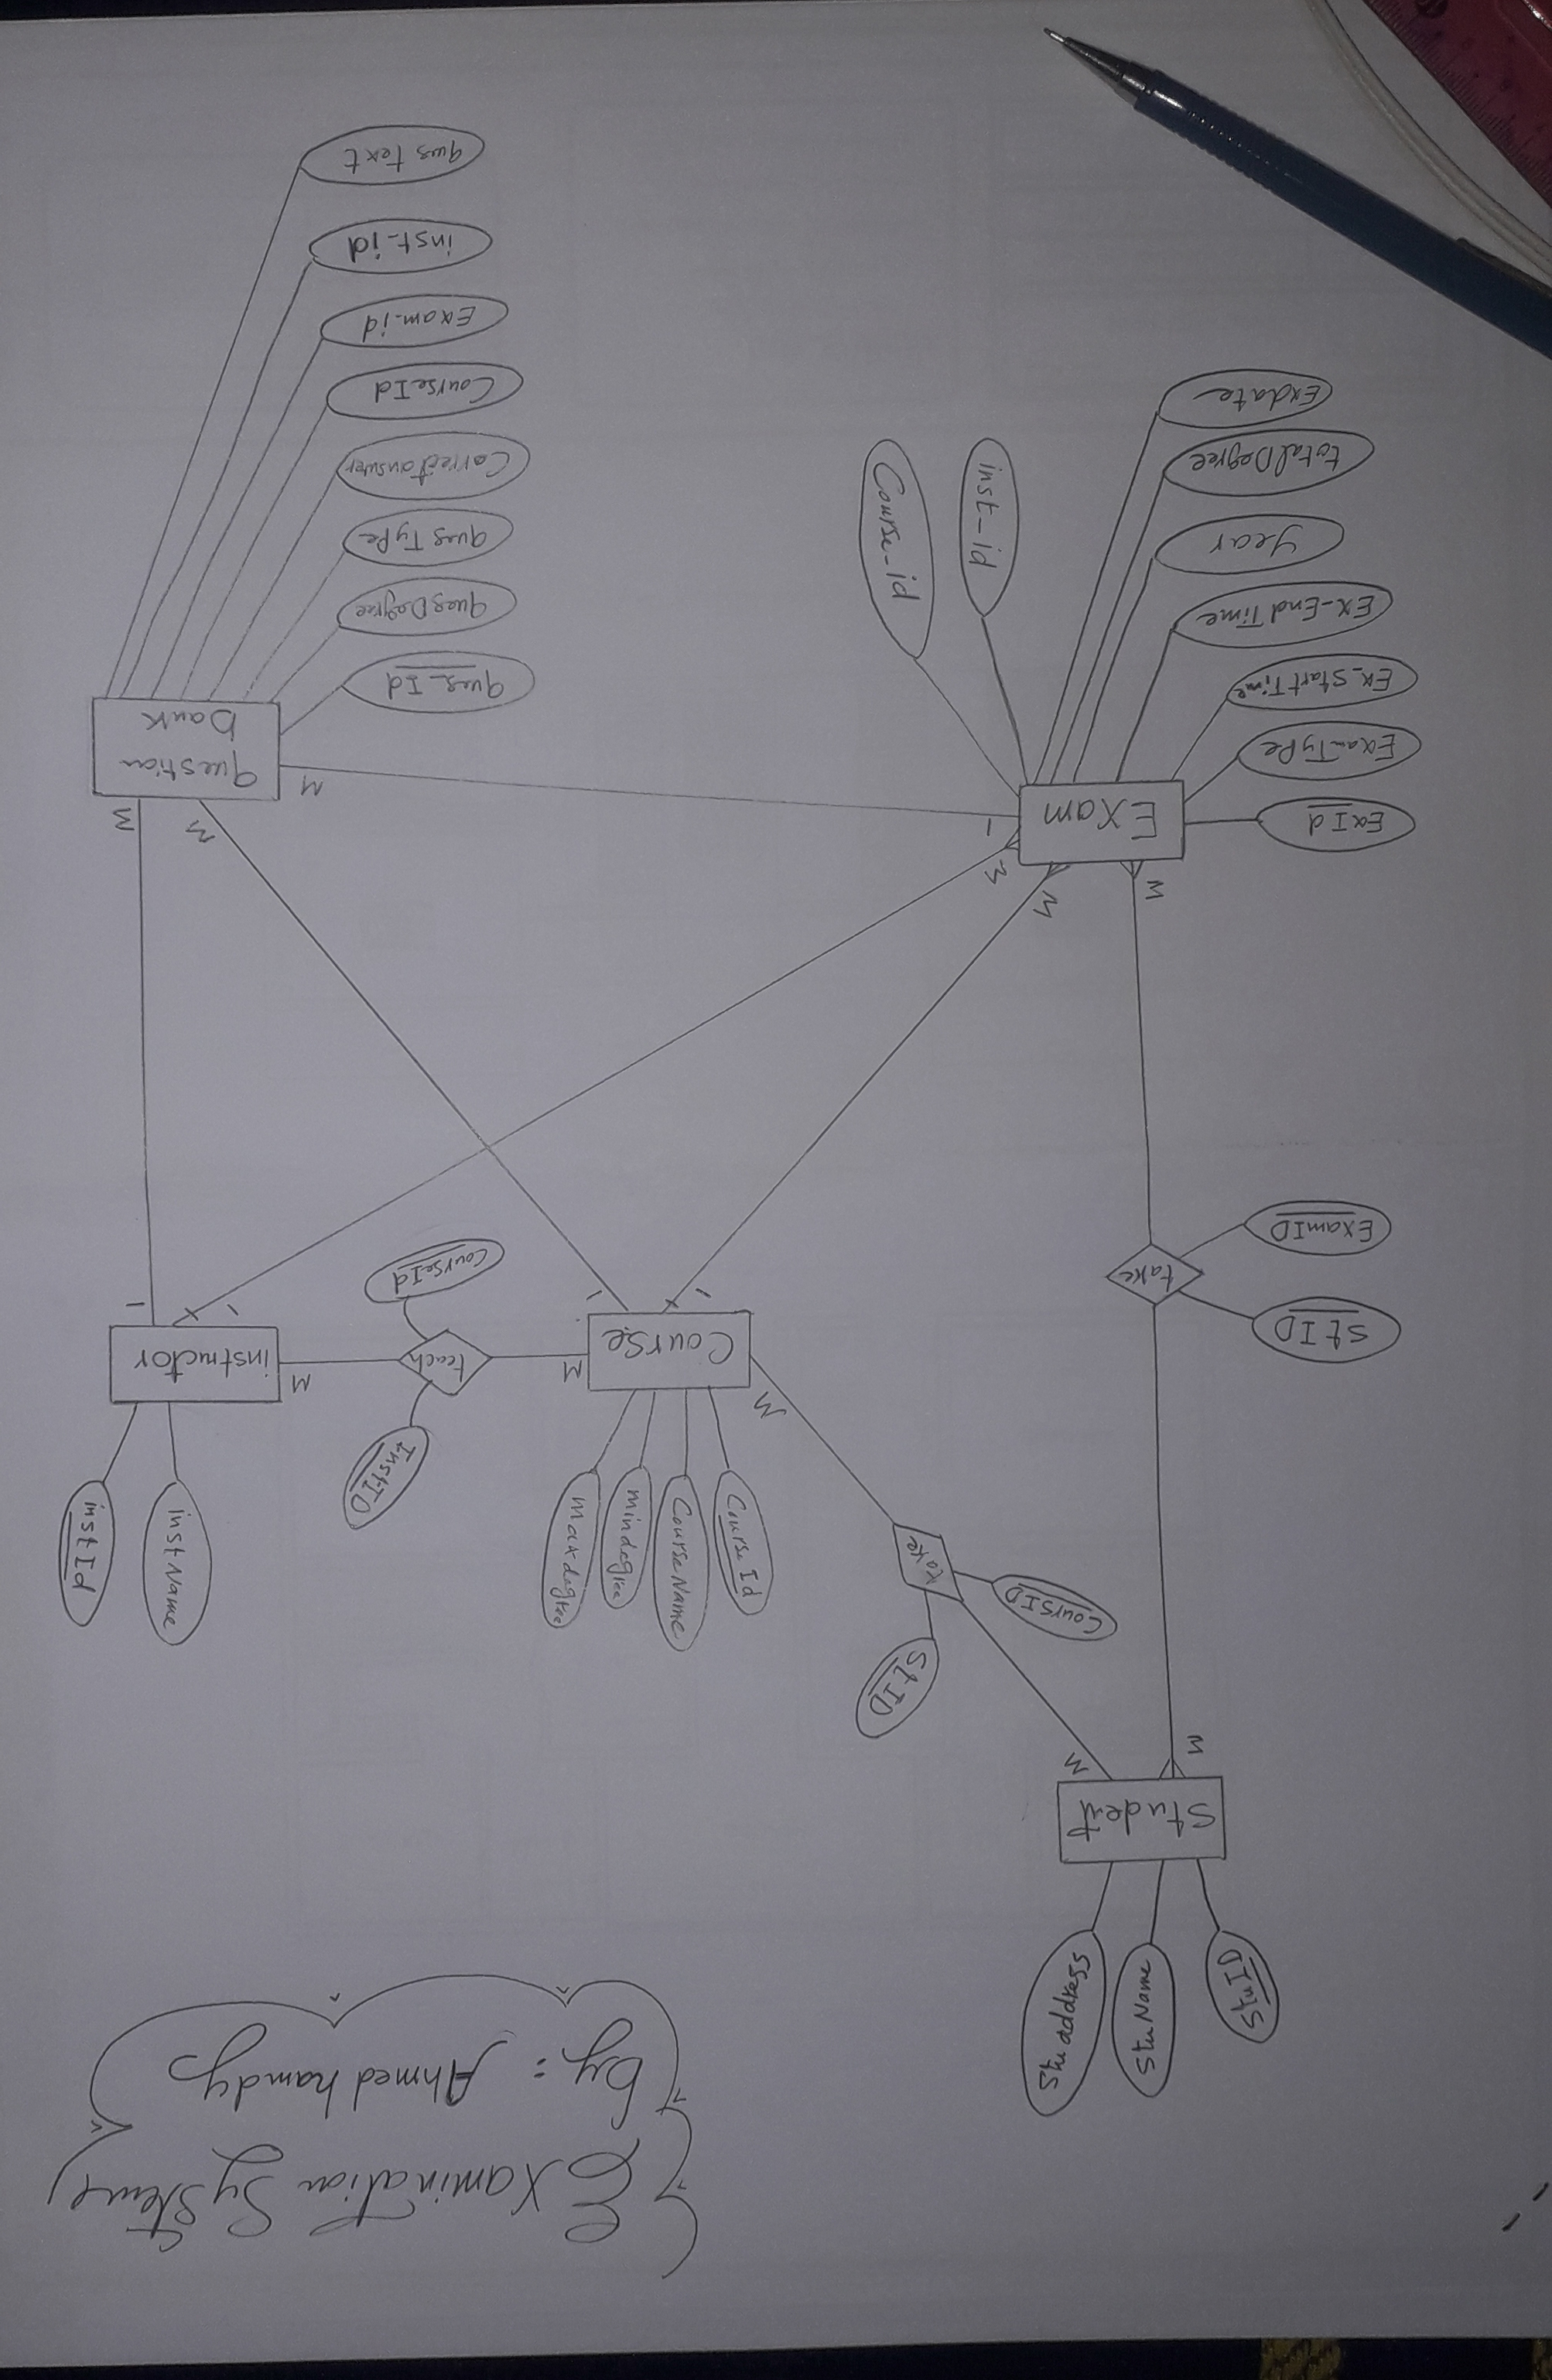 Examination System
by: Ahmed hamdy
StuID
StuName
Stuaddress
Student
M
M
StID
CoursID
take
M
Course Id
Course Name
mindegree
maxdegree
instName
instId
InstID
Course
M
teach
M
instructor
CourseId
1
1
1
1
stID
take
ExamID
M
M
M
M
M
Exam
1
M
question
bank
ExId
ExamType
Ex_StartTime
Ex-EndTime
year
totalDegree
Exdate
inst_id
Course_id
ques_Id
quesDegree
quesType
Correctanswer
CourseId
Exam_id
inst_id
ques text